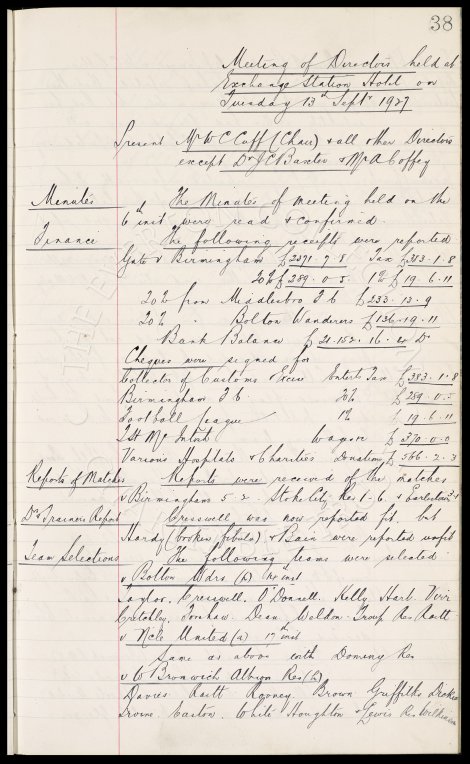 38
Meeting of Directors held at
Exchange Station Hotel on
Tuesday 13th Septr 1927
Present Mr W C Cuff (Chair) & all other Directors
except Dr J C Baxter & Mr A Coffey
Minutes The Minutes of meeting held on the
6th inst were read & confirmed.
Finance The following receipts were reported
Gate v Birmingham £2371.9.8 Tax £383.1.8
20% £289.0.5 1% £19.6.11
20% from Middlesbro F C £233.13.9
20% " Bolton Wanderers £136.19.11
Bank Balance £21.152.16.4 Dr
Cheques were signed for
Collector of Customs Excise Enterts Tax £383.1.8
Birmingham F C 20% £289.0.5
Football League 1% £19.6.11
T H McIntosh Wages £370.0.0
Various Hospitals & Charities Donations £566.2.3
Reports of Matches Reports were received of the matches
v Birmingham 5-2. Stoke City Res 1-6. & Earlestown
Dr & Trainers Report Cresswell was now reported fit, but
Hardy (broken fibula) & Bain were reported unfit
Team Selections The following teams were selected
v Bolton Wdrs (h) inst
Taylor. Cresswell. O'Donnell. Kelly Hart. Virr
Critchley. Forshaw. Dean. Weldon. Troup Res Raitt
v N'cle United (a) 17th inst
Same as above with Dominy Res
v W Bromwich Albion Res (h)
Davies Raitt Rooney. Brown Griffiths
Irvine. Easton. White Houghton & Lewis Res Wilkinson